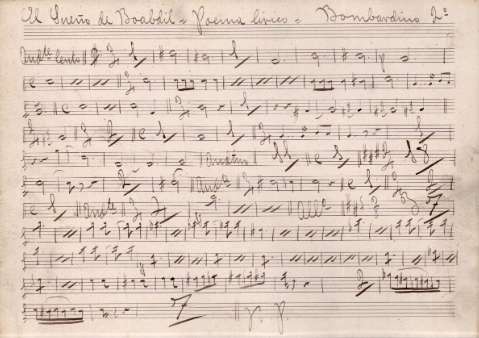 El Sueño de Boabdil - Poema lírico - Bombardino 2º
Andte lento
Andte
Allº